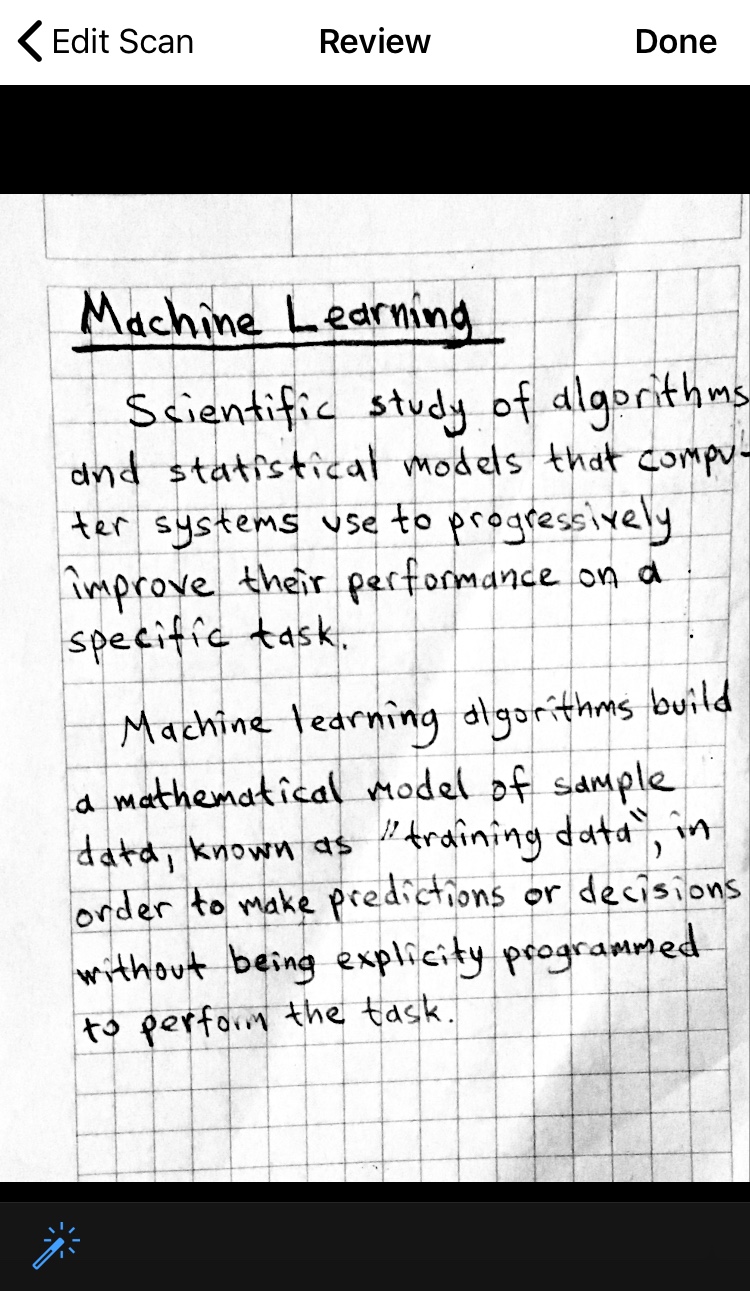 Edit Scan Review Done
Machine Learning
Scientific study of algorithms
and statistical models that compu-
ter systems use to progressively
improve their performance on a
specific task.
Machine learning algorithms build
a mathematical model of sample
data, known as "training data", in
order to make predictions or decisions
without being explicity programmed
to perform the task.